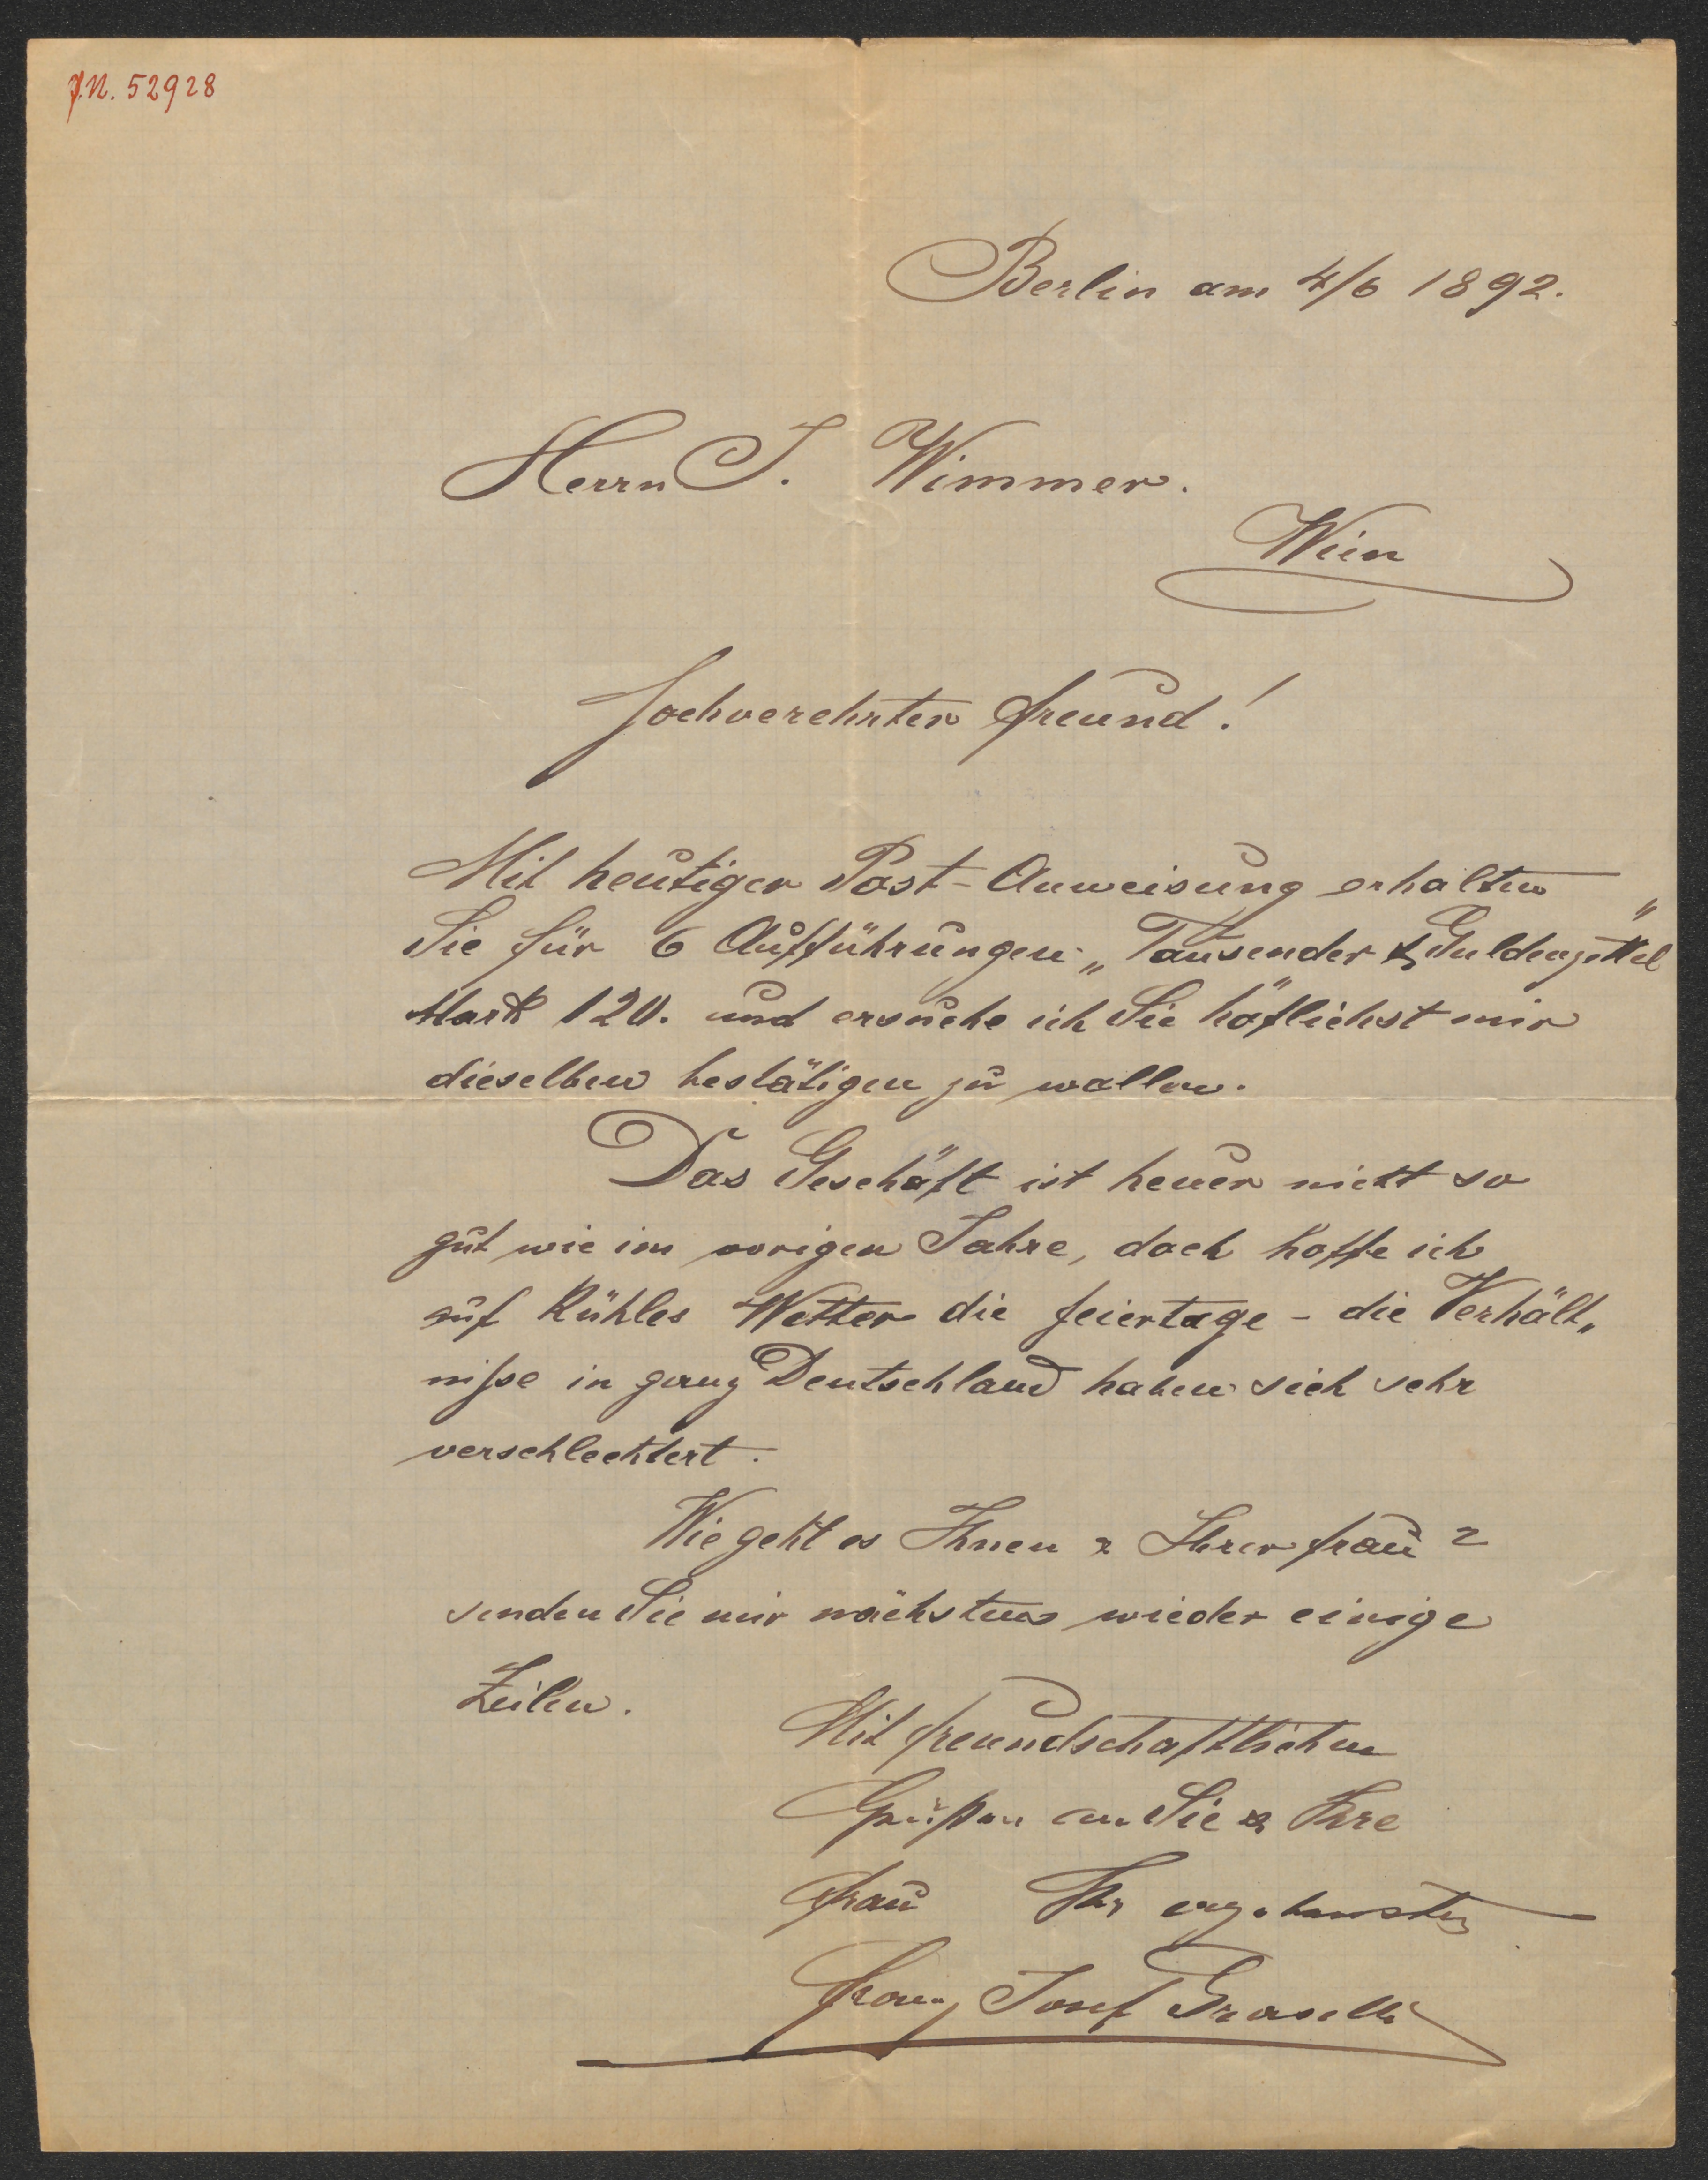 J.N. 52928
Berlin am 4/6 1892.
Herrn J. Wimmer.
Wien
Hochverehrter Freund!
Mit heutiger Post-Anweisung erhalten
Sie für 6 Aufführungen „Tausender & Guldenzettel"
Mark 120. und ersuche ich Sie höflichst mir
dieselben bestätigen zu wollen.
Das Geschäft ist heuer nicht so
gut wie im vorigen Jahre, doch hoffe ich
auf kühles Wetter die Feiertage - die Verhält„
niße in ganz Deutschland haben sich sehr
verschlechtert.
Wie geht es Ihnen & Ihrer Frau?
senden Sie mir nächstens wieder einige
Zeilen.
Mit freundschaftlichen
Grüßen an Sie & Ihre
Frau Ihr ergebenster
Franz Josef Graselli